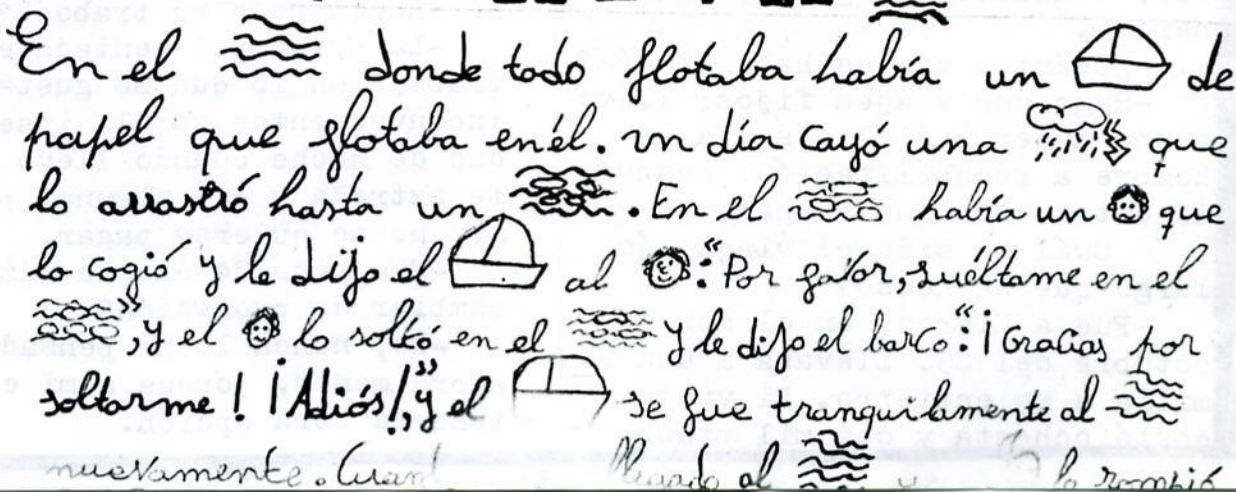 En el donde todo flotaba había un de
papel que flotaba en él. un día cayó una que
lo arrastró hasta un . En el había un que
lo cogió y le dijo el al : "Por favor, suéltame en el
", y el lo soltó en el y le dijo el barco: "¡Gracias por
soltarme! ¡Adiós!", y el se fue tranquilamente al
nuevamente. llegado al lo rompió